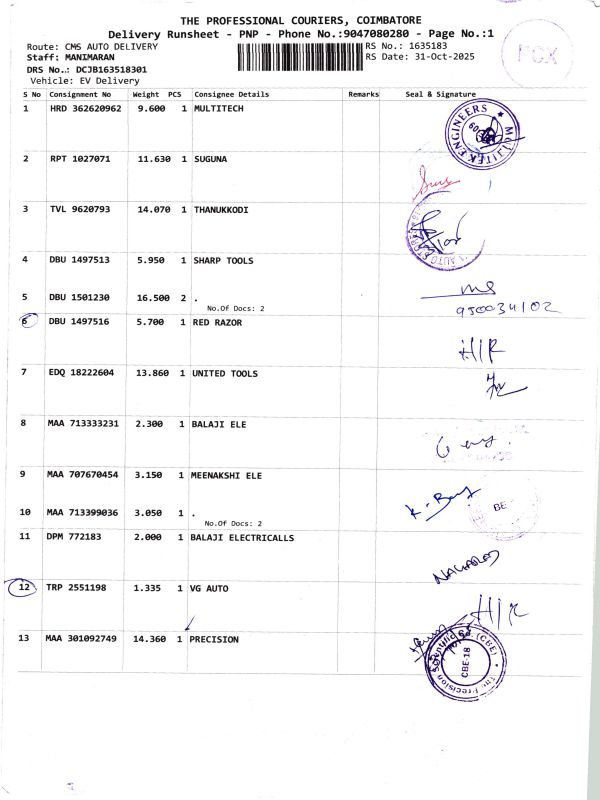 THE PROFESSIONAL COURIERS, COIMBATORE
Delivery Runsheet - PNP - Phone No.:9047080280 - Page No.:1
Route: CMS AUTO DELIVERY
RS No.: 1635183
Staff: MANIMARAN
RS Date: 31-Oct-2025
DRS No..: DCJB163518301
Vehicle: EV Delivery
PCX
S No Consignment No Weight PCS Consignee Details Remarks Seal & Signature
1 HRD 362620962 9.600 1 MULTITECH
ENGINEERS
2 RPT 1027071 11.630 1 SUGUNA
3 TVL 9620793 14.070 1 THANUKKODI
4 DBU 1497513 5.950 1 SHARP TOOLS
5 DBU 1501230 16.500 2 .
No.Of Docs: 2
950034102
6 DBU 1497516 5.700 1 RED RAZOR
H/R
7 EDQ 18222604 13.860 1 UNITED TOOLS
8 MAA 713333231 2.300 1 BALAJI ELE
9 MAA 707670454 3.150 1 MEENAKSHI ELE
10 MAA 713399036 3.050 1 .
No.Of Docs: 2
BE
11 DPM 772183 2.000 1 BALAJI ELECTRICALLS
12 TRP 2551198 1.335 1 VG AUTO
H/R
13 MAA 301092749 14.360 1 PRECISION
The Precision Scientific Co. (CBE)
CBE-18